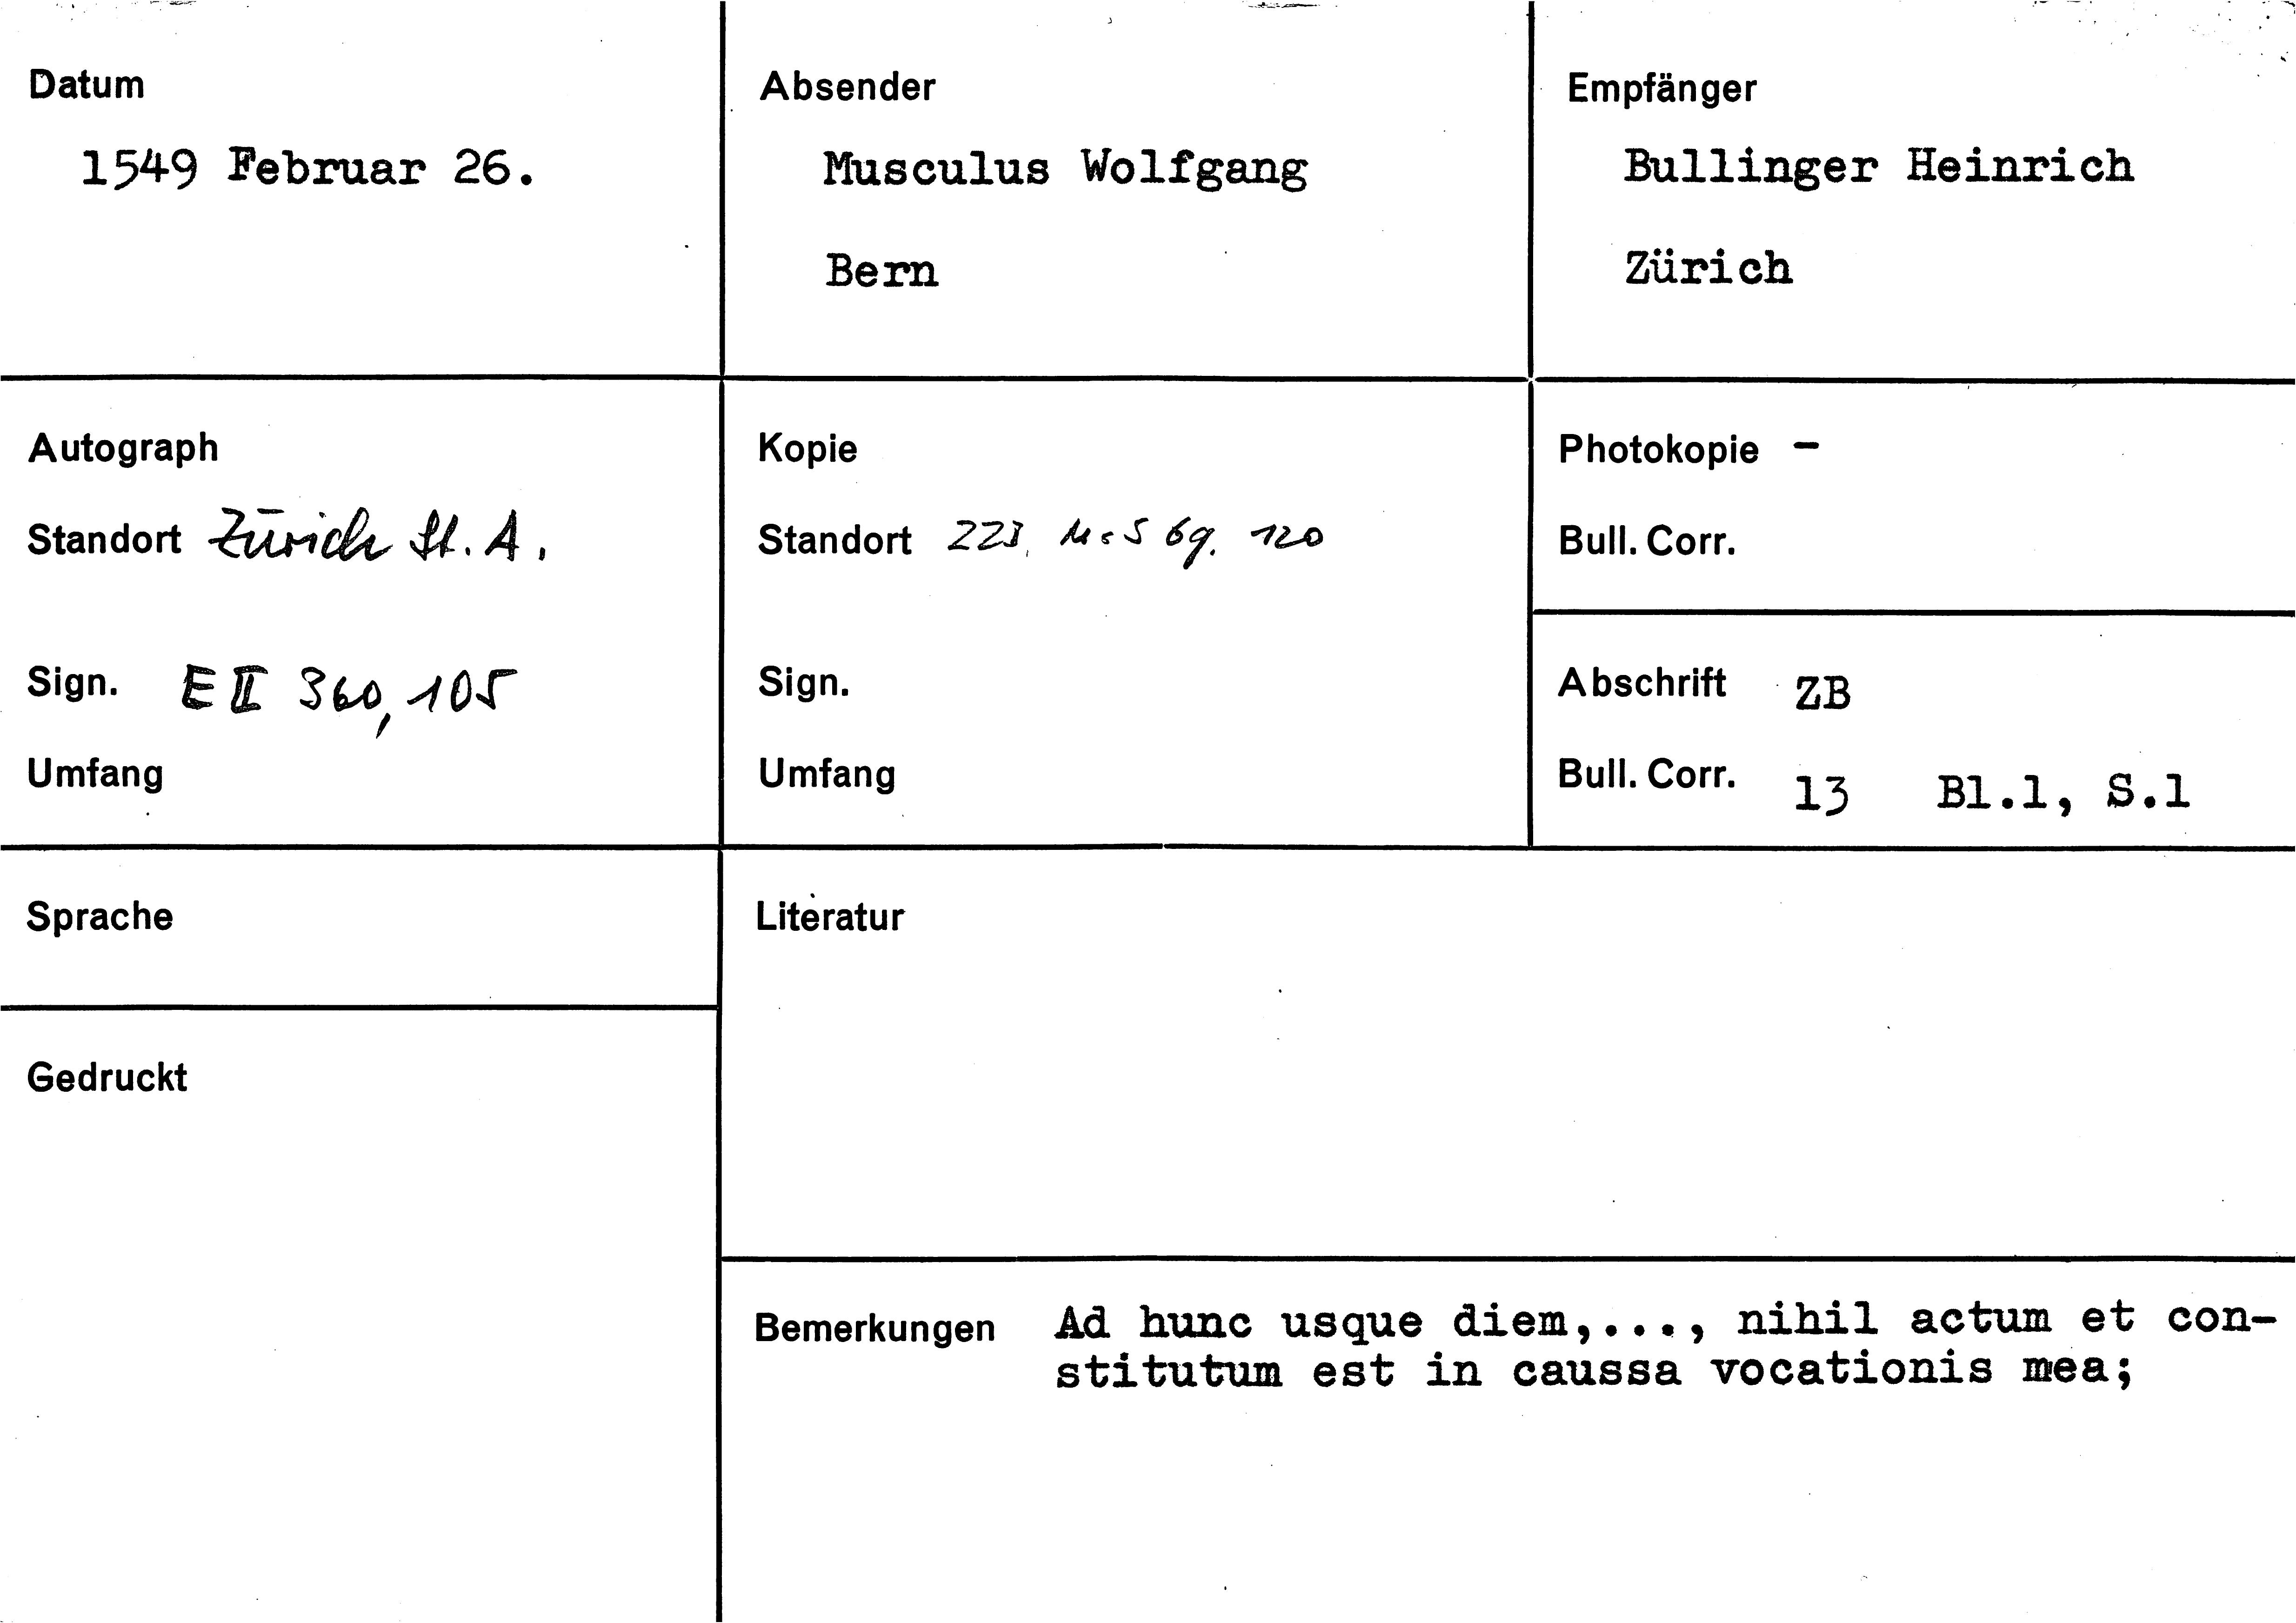 Datum
1549 Februar 26.
Absender
Musculus Wolfgang
Bern
Empfänger
Bullinger Heinrich
Zürich
Autograph
Standort Zürich St. A.
Sign. E II 360, 105
Umfang
Kopie
Standort ZZB, Ms S 69, 120
Sign.
Umfang
Photokopie –
Bull. Corr.
Abschrift ZB
Bull. Corr. 13 Bl.1, S.1
Sprache
Literatur
Gedruckt
Bemerkungen Ad hunc usque diem,..., nihil actum et con-
stitutum est in caussa vocationis mea;